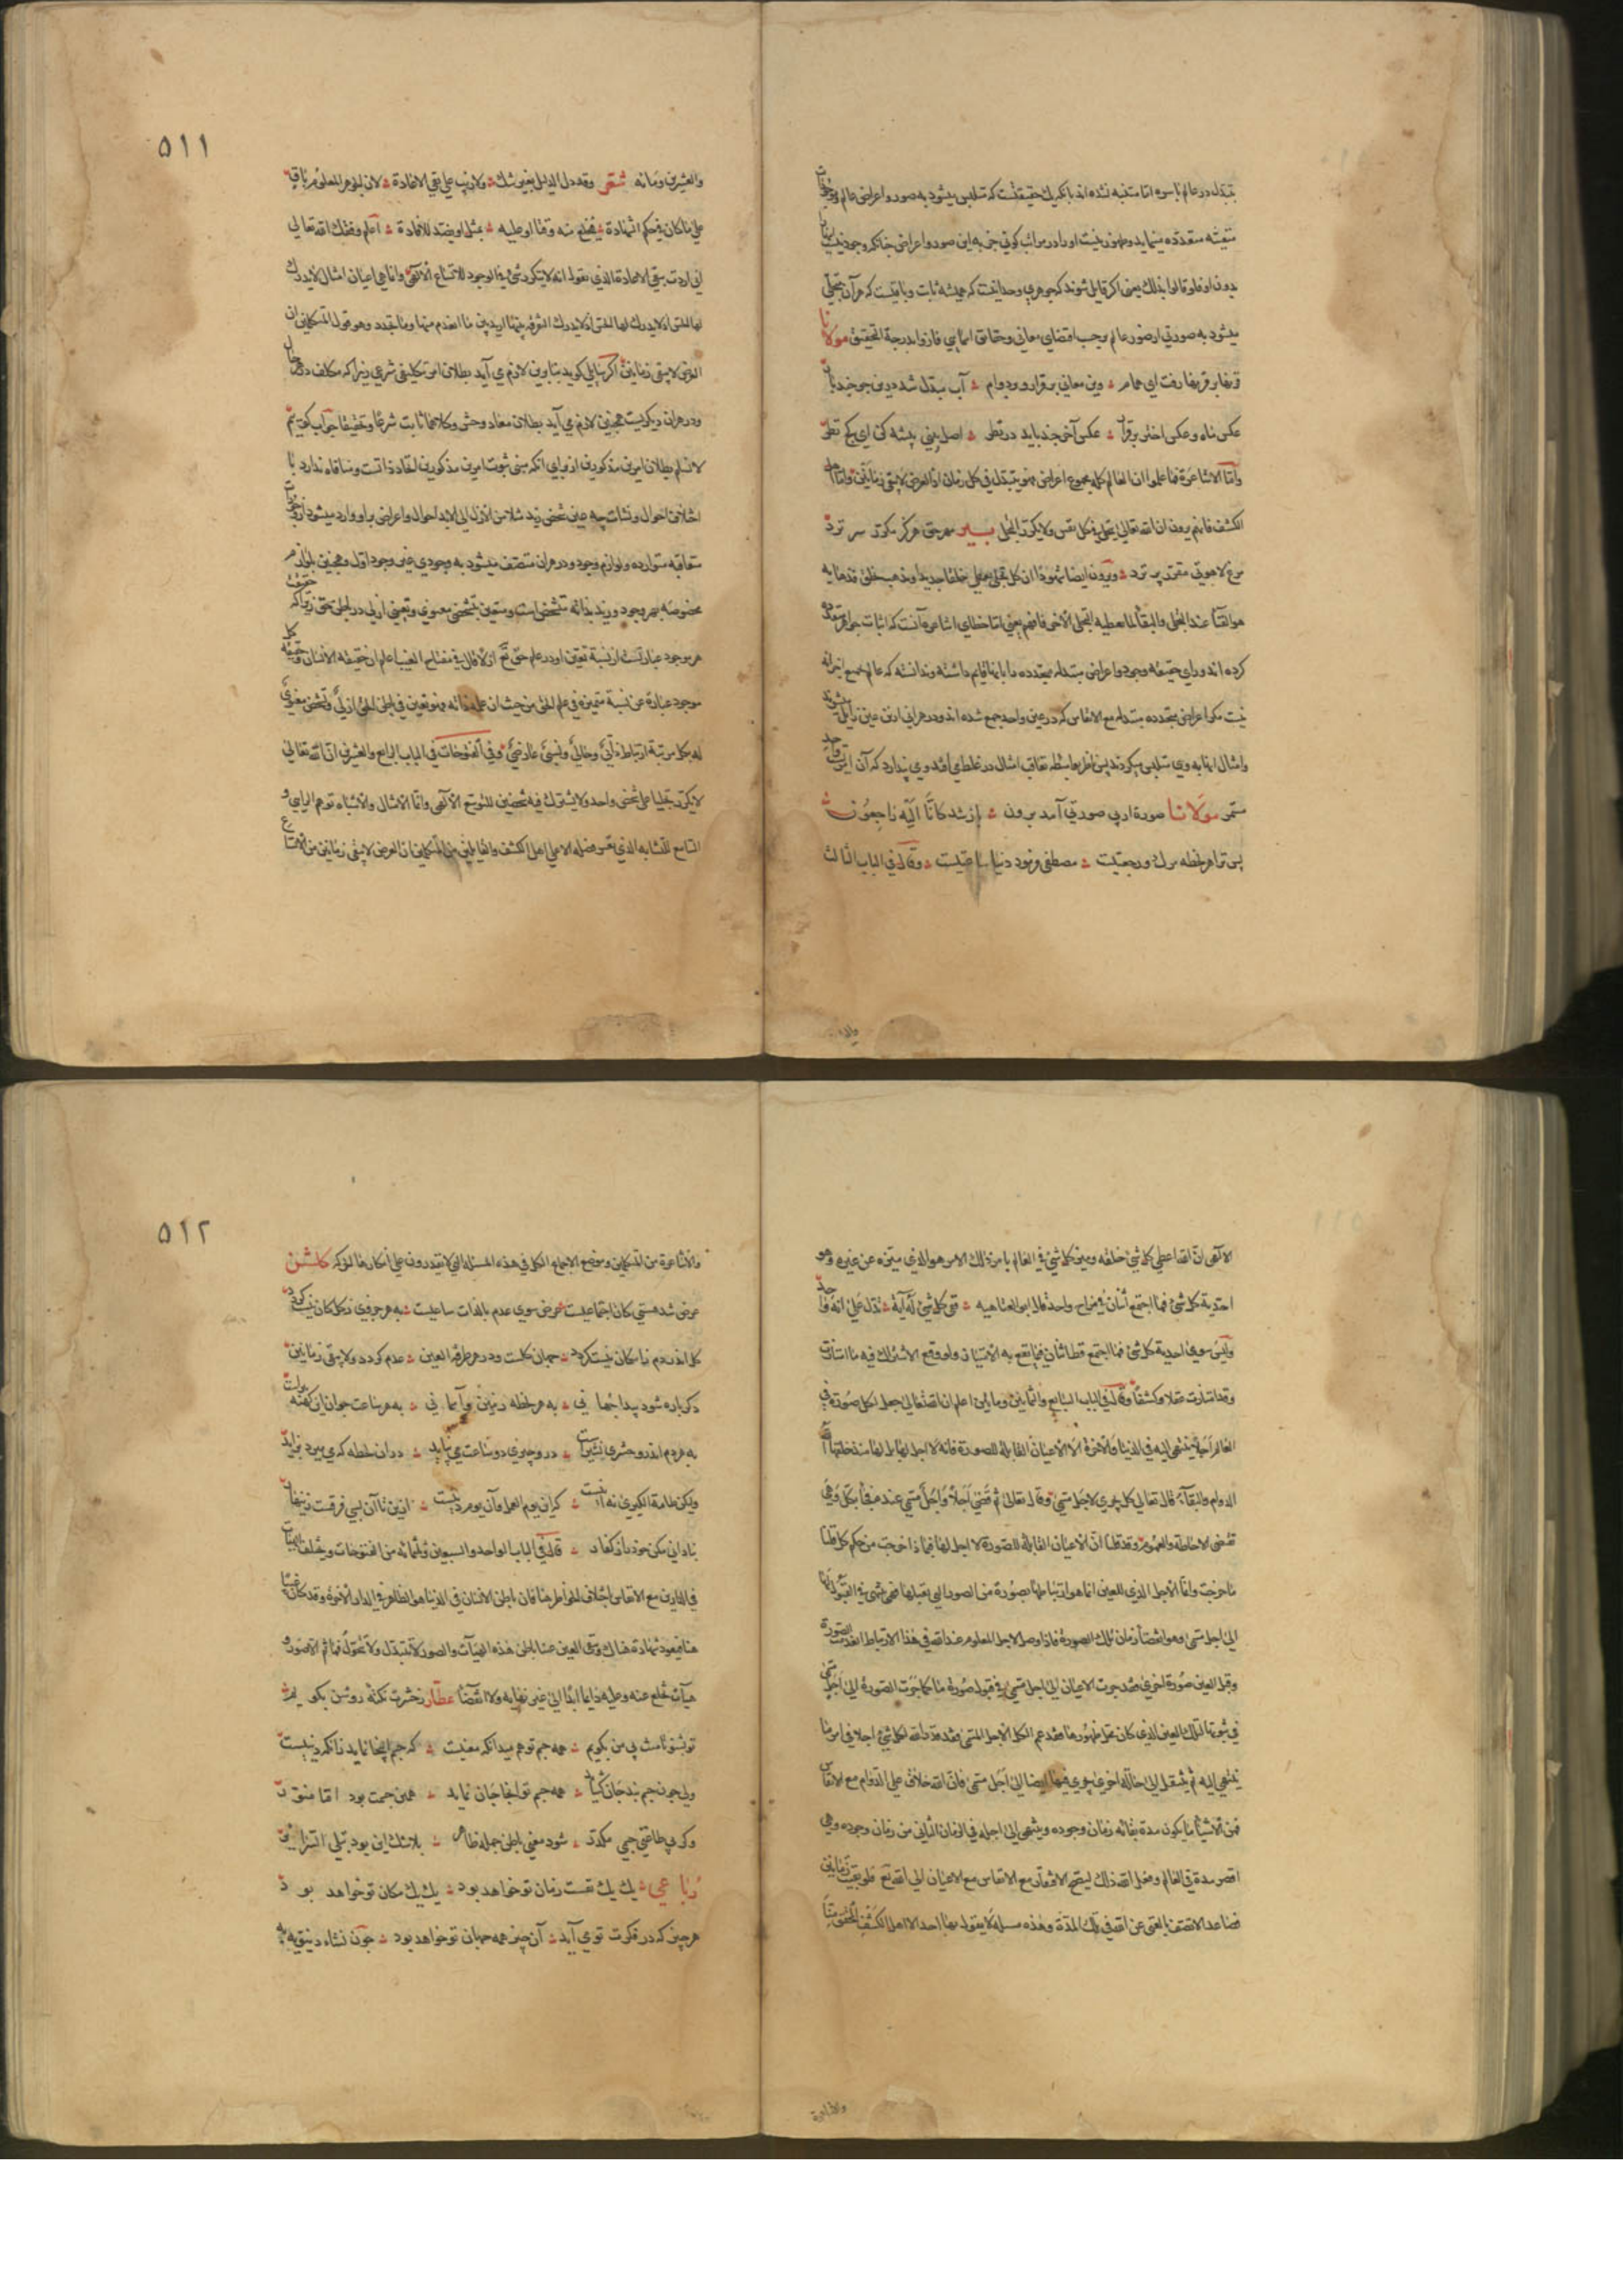 تبدل در عالم باسره اما متنبه نشده‌اند بانکه یک حقیقتست که متلبس میشود به صور و اعراض عالم و موجودات
متعینه متعدده مینماید و ظهور نیست او را در مراتب کونی جز به این صور و اعراض چنانکه وجود نیست اینها را
بدون او فلو قالوا بذلک یعنی اکر قایل شوند که جوهری وحدانیست که همیشه ثابت و باقیست که هر آن متجلی
میشود به صورتی از صور عالم بوجب اقتضای معانی و حقایق اسمایی فازوا بدرجة التحقیق مولانا
قرنها بر قرنها رفت ای همام وین معانی برقرار و بر دوام آب مبدل شد درین جو چند بار
عکس ماه و عکس اختر برقرار عکس آخر چند باید در نظر اصل بینی پیشه کن ای کج نظر
واما الاشاعرة فما علموا ان العالم کله مجموع اعراض فهو یتبدل فی کل زمان اذ العرض لا یبقی زمانین واما اهل
الکشف فانهم یرون ان الله تعالی یتجلی فی کل نفس ولا یکرر التجلی
ویرون ایضا شهودا ان کل تجلی یعطی خلقا جدیدا ویذهب بخلق فذهابه
هو الفناء عند التجلی والبقاء لما یعطیه التجلی الآخر فافهم یعنی اما خطای اشاعره آنست که اثبات جواهر متعدده
کرده‌اند ورای حقیقه وجود و اعراض متبدله متجدده را بانها قایم داشته و ندانسته که عالم بجمیع اجزائه
نیست مکر اعراض متجدده متبدله مع الانفاس که در عین واحد جمع شده‌اند و در هر آنی ازین عین زایل میشوند
وامثال اینها به وی متلبس میکردند پس ناظر بواسطه تعاقب امثال در غلط می افتد و می پندارد که آن امریست واحد
مستمر مولانا صورة از بی صورتی آمد برون باز شد کانا الیه راجعون
پس ترا هر لحظه مرک و رجعتیست مصطفی فرمود دنیا ساعتیست وقال فی الباب الثالث
۵۱۱
والعشرین ومائه شعر وقد دل الدلیل بغیر شک ولا ریب علی نفی الاعادة لان الجوهر المعلوم باق
علی ما کان فی حکم الشهادة فیخلع منه وقتا او علیه بمثل او بضد للافادة اعلم وفقک الله تعالی
لها الحس اذ لا یدرک التفرقه بینها ارید بین ما انعدم منها وما تجدد وهو قول المتکلمین ان
العرض لا یبقی زمانین اکر سایلی کوید بنابرین لازم می آید بطلان امر تکلیفی شرعی زیرا که مکلف در حال
ودر هر آن دیکریست همچنین لازم می آید بطلان معاد و حشر وکلاهما ثابت شرعا وتحقیقا جواب کوییم
لا نسلم بطلان امرین مذکورین از برای آنکه مبنی ثبوت امرین مذکورین اتحاد ذاتست و منافاه ندارد با
اختلاف احوال و نشات چه عین شخص زید مثلا من الازل الی الابد احوال و اعراض بر او وارد میشود از وجودات
متعاقبه متوارده و لوازم وجود و در هر آن متصف میشود به وجودی غیر وجود اول و همچنین بلوازم
مخصوصه بهر وجود و زید بذاته متشخص است و متعین بتشخص معنوی و تعینی ازلی در علم حق زیرا که حقیقت
هر موجود عبارتست از نسبة تعین او در علم حق تع ازلا قال فی مفتاح الغیب اعلم ان حقیقة الانسان وحقیقة کل
موجود عبارة عن نسبة متمیزة فی علم الحق من حیث ان علمه ذاته فهو تعین فی باطن الحق ازلی وتشخص معنوی
له بکل مرتبة ارتباط ذاتی وحالی ونسبی عارضی وفی الفتوحات فی الباب الرابع والعشرین ان الله تعالی
لا یکرر تجلیا علی شخص واحد ولا یشترک فیه شخصین للتوسع الالهی وانما الامثال والاشباه توهم الرایی و
السامع للتشابه الذی یعسر فصله الا علی اهل الکشف والقایلین من المتکلمین ان العرض لا یبقی زمانین من الاتساع
الالهی ان الله اعطی کل شئ خلقه ومیز کل شئ فی العالم بامر ذلک الامر هو الذی میزه عن غیره وهو
احدیة کل شئ فما اجتمع اثنان فی مزاج واحد قال ابو العتاهیه ففی کل شئ له آیة تدل علی انه واحد
ولیس سوی احدیة کل شئ فما اجتمع قط اثنان فیما یقع به الامتیاز ولو وقع الاشتراک فیه ما امتازت
وقد امتازت عقلا وکشفا وقال فی الباب السابع والثمانین ومایتین اعلم ان الله تعالی جعل لکل صورة فی
العالم اجلا تنتهی الیه فی الدنیا والآخرة الا الاعیان القابلة للصورة فانه لا اجل لها بل لها منذ خلقها الله
الدوام والبقاء قال تعالی کل یجری لاجل مسمی وقال تعالی ثم قضی اجلا واجل مسمی عنده فجاء بکل وهی
تقتضی الاحاطة والعموم وقد قلنا ان الاعیان القابلة للصورة لا اجل لها فبماذا خرجت من حکم کل قلنا
ما خرجت وانما الاجل الذی للعین انما هو ارتباطها بصورة من الصور التی تقبلها فهی تنتهی فی القبول لها
الی اجل مسمی وهو انقضاء زمان تلک الصورة فاذا وصل الاجل المعلوم عند الله فی هذا الارتباط انعدمت الصورة
وقبل العین صورة اخری فقد جرت الاعیان الی اجل مسمی فی قبول صورة ما کما جرت الصورة الی اجل مسمی
فی ثبوتها لتلک العین الذی کان محل ظهورها فقد عم الکل الاجل المسمی فقد قدر الله لکل شئ اجلا فی امر ما
ینتهی الیه ثم ینتقل الی حالة اخری یجری فیها ایضا الی اجل مسمی فان الله خلاق علی الدوام مع الانفاس
فمن الاشیاء ما یکون مدة بقائه زمان وجوده وینتهی الی اجله فی الزمان الثانی من زمان وجوده وهی
اقصر مدة فی العالم وفعل الله ذلک لیصح الافتقار مع الانفاس مع الاعیان الی الله تع فلو بقیت زمانین
فصاعدا لاتصفت بالغنی عن الله فی تلک المدة وهذه مسئلة لا یقول بها احد الا اهل الکشف المحقق منا
۵۱۲
والاشاعرة من المتکلمین وموضع الاجماع الکل فی هذه المسئلة التی لا یقدرون علی انکارها الحرکه کلشن
عرض شد هستی کان اجتماعیست عرض سوی عدم بالذات ساعیست به هر جزوی ز کل کان نیست کردد
کل اندر دم ز امکان نیست کردد جهان کلست و در هر طرفة العین عدم کردد ولا یبقی زمانین
دکرباره شود پیدا جهانی به هر لحظه زمین و آسمانی به هر ساعت جوان این کهنه پیرست
به هر دم اندرو حشر و نشیرست درو چیزی دو ساعت می نپاید در آن لحظه که می میرد بزاید
ولیکن طامة الکبری نه اینست که این یوم العمل و آن یوم دینست ازین تا آن بسی فرقست زنهار
بنادانی مکن خود را ز کفار قال فی الباب الواحد والسبعین وثلثمائه من الفتوحات ویختلف الهیآت
فی الدارین مع الانفاس اختلاف الخواطر هنا فان باطن الانسان فی الدنیا هو الظاهر فی الدار الآخرة وقد کان غیبا
هنا فیعود شهادة هناک وتبقی العین عینا باطن هذه الهیآت والصور لا تتبدل ولا تتحول فما ثم الا صور و
هیآت تخلع عنه وعلیه دایما ابدا الی غیر نهایه ولا انقضاء عطار ز حشرت نکته روشن بکویم
تو بشنو تا منت بی من بکویم همه جسم تو هم میدانکه معنیست که جسم اینجا نماید زانکه دنییست
ولی چون جسم بند جان کشاید همه جسم تو آنجا جان نماید همین جسمت بود اما منور
وکر بی طاعتی جسمی مکدر شود معنی باطن جمله ظاهر بلا شک این بود تبلی السرائر
رباعی یک یک نفست زمان تو خواهد بود یک یک مکان تو خواهد بود
هر چیز که در فکرت تو می آید آن چیز همه جهان تو خواهد بود چون نشاء دنیویه